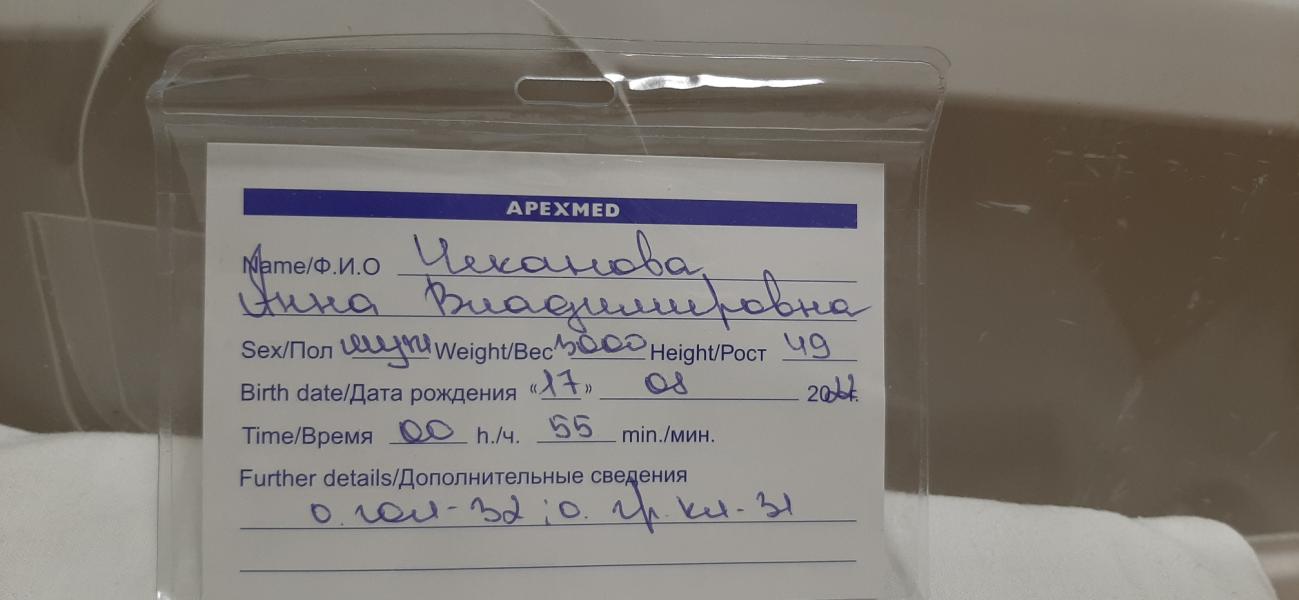 APEXMED
Name/Ф.И.О Чеканова
Анна Владимировна
Sex/Пол муж Weight/Вес 3000 Height/Рост 49
Birth date/Дата рождения «17» 08 2022г.
Time/Время 00 h./ч. 55 min./мин.
Further details/Дополнительные сведения
о. гол - 32 ; о. гр. кл - 31